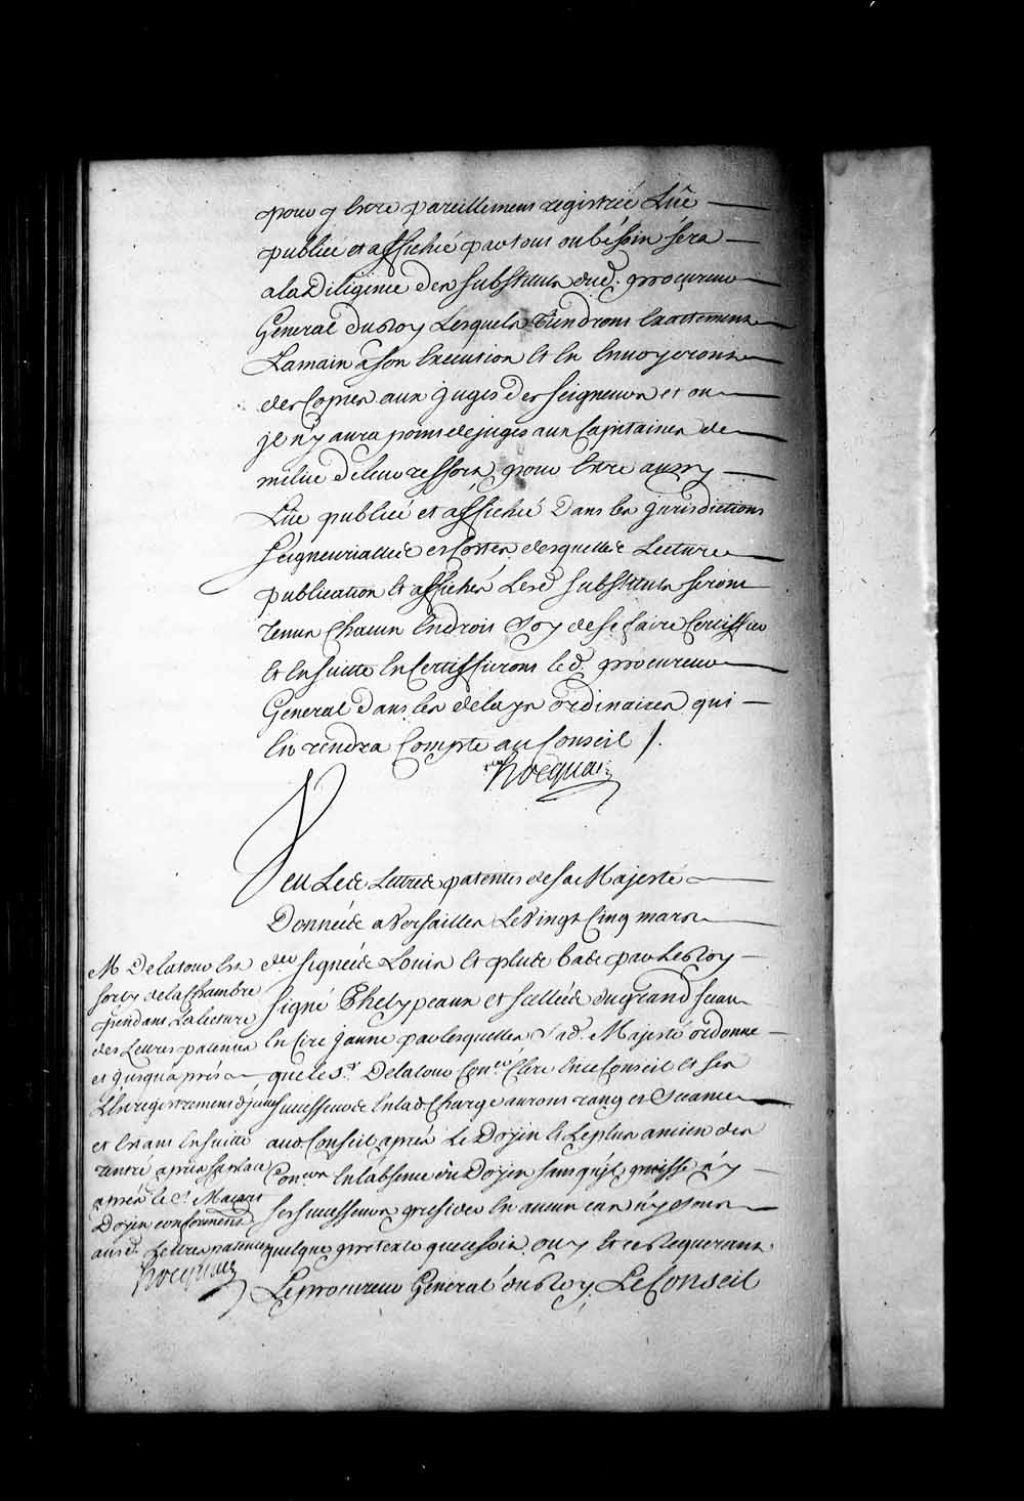 pour y Estre pareillement registrée Lûe
publiée et affichée partout ou bésoin séra
a la Diligence des substituts dud. procureur
General du Roy Lesquels Tiendront Exactement
La main a son Execution Et En Envoyeront
des Copies aux juges des seigneurs et ou
jl n'y aura point de juges aux Capitaines de
milice de leur ressort, pour Estre aussy
Lûe publiée et affichée Dans les jurisdictions
seigneurialles et Costes, desquelles Lecture
publication Et affiches Lesd substituts seront
Tenus Chacun Endroit Soy de se faire Certiffier
Et Ensuitte En Certiffieront led. procureur
General Dans les délays ordinaires qui
En rendra Compte au Conseil /.
hocquart
Veu Les Lettres patentes de sa Majesté
Données a Versailles Le Vingt Cinq mars
der signées Louis Et plus bas par Le Roy
signé Phelypeaux et scellées du grand sceau
En Cire jaune par lesquelles Sad. Majesté ordonne
que le Sr. Delatour Coner. Clerc En ce Conseil Et ses
successeurs En lad Charge auront rang et séance
aud Conseil après Le Doyen Et Le plus ancien des
Coners En l'absence du Doyen sans qu'jl puisse n'y
ses successeurs presider En aucun cas n'y sous
quelque pretexte que ce soit, ouy Et ce Requerant
Le procureur General du Roy, Le Conseil
M Delatour Est
sorty de la Chambre
pendant La lecture
des Lettres patentes
et jusqu'après
L'Enregistrement d'jcelles
et Estant Ensuitte
rentré a pris sa place
après le Sr. Macart
Doyen conformemt
ausd. Lettres patentes
hocquart